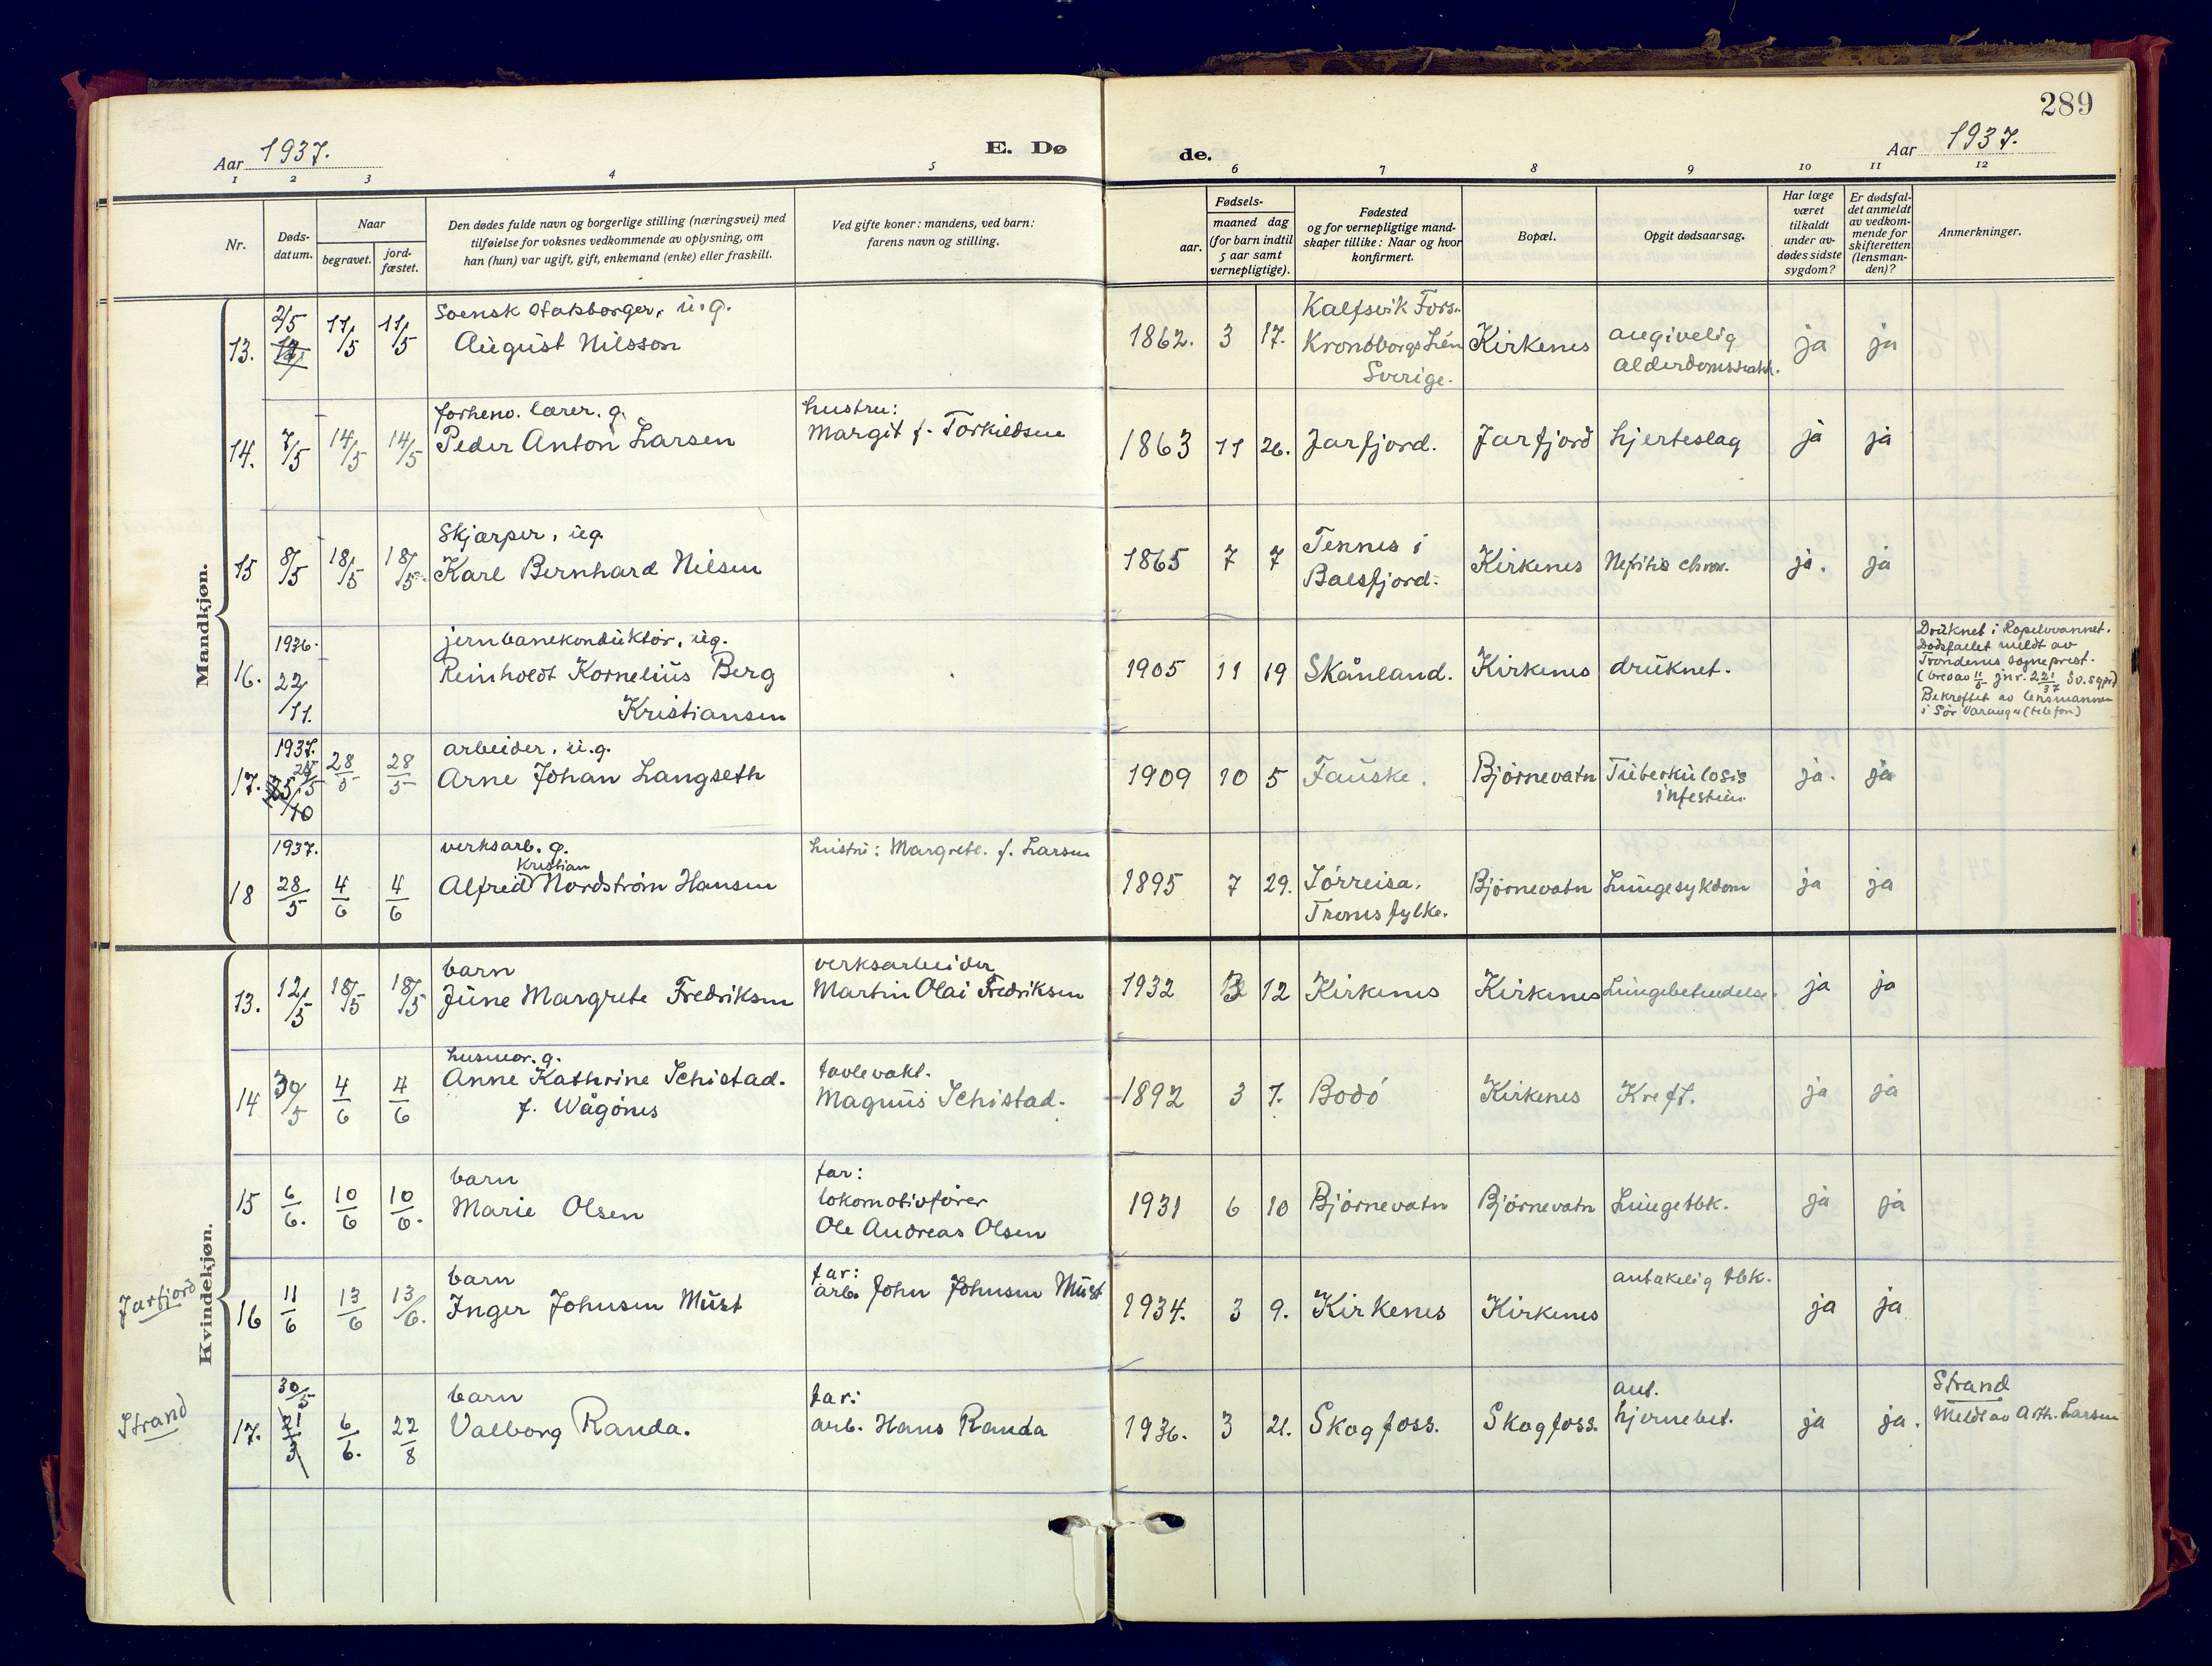 289
Aar 1937.
E. Dø
de.
Aar 1937.
1 2 3 4 5 6 7 8 9 10 11 12
Nr.
Døds-
datum.
Naar
begravet.
jord-
fæstet.
Den dødes fulde navn og borgerlige stilling (næringsvei) med
tilføielse for voksnes vedkommende av oplysning, om
han (hun) var ugift, gift, enkemand (enke) eller fraskilt.
Ved gifte koner: mandens, ved barn:
farens navn og stilling.
Fødsels-
aar.
maaned dag
(for barn indtil
5 aar samt
vernepligtige).
Fødested
og for vernepligtige mand-
skaper tillike: Naar og hvor
konfirmert.
Bopæl.
Opgit dødsaarsag.
Har læge
været
tilkaldt
under av-
dødes sidste
sygdom?
Er dødsfal-
det anmeldt
av vedkom-
mende for
skifteretten
(lensman-
den)?
Anmerkninger.
Mandkjøn.
13. 2/5 11/5 11/5
Svensk statsborger, u.g.
August Nilsson
1862. 3 17.
Kalfsvik Fors.
Kronoborgs Län
Sverige.
Kirkenes
angivelig
alderdomssvakh.
ja ja
14. 7/5 14/5 14/5
forhenv. lærer. g.
Peder Anton Larsen
hustru:
Margit f. Torkildsen
1863 11 26. Jarfjord. Jarfjord hjerteslag ja ja
15 8/5 18/5 18/5
Skjærper, ug.
Karl Bernhard Nilsen
1865 7 7
Tennes i
Balsfjord.
Kirkenes Nefritis chron. ja. ja
16. 1936. 22/11.
jernbanekonduktør, ug.
Reinholdt Kornelius Berg
Kristiansen
1905 11 19 Skånland. Kirkenes druknet.
Druknet i Ropelvvannet.
Dødsfallet meldt av
Trondenes sogneprest.
Bekreftet av lensmannen
i Sør Varanger (telefon)
17. 1937. 28/5 28/5
arbeider, u.g.
Arne Johan Langseth
1909 10 5 Fauske. Bjørnevatn
Tuberkulosis
intestin.
ja. ja
18 1937. 28/5 4/6 4/6
verksarb. g.
Kristian
Alfred Nordstrøm Hansen
hustru: Margrete. f. Larsen
1895 7 29.
Sørreisa,
Troms fylke.
Bjørnevatn Lungesykdom ja ja
Kvindekjøn.
13. 12/5 18/5 18/5
barn
June Margrete Fredriksen
verksarbeider
Martin Olai Fredriksen
1932 12 Kirkenes Kirkenes Lungebetendelse. ja ja
14 30/5 4/6 4/6
husmor. g.
Anne Kathrine Schistad.
f. Vågønes
tavlevakt.
Magnus Schistad.
1892 3 7. Bodø Kirkenes Kreft. ja ja
15 6/6. 10/6 10/6.
barn
Marie Olsen
far:
lokomotivfører
Ole Andreas Olsen
1931 6 10 Bjørnevatn Bjørnevatn Lungetbk. ja ja
Jarfjord
16 11/6 13/6 13/6.
barn
Inger Johnsen Must
far:
arb. John Johnsen Must
1934. 3 9. Kirkenes Kirkenes
antakelig tbk.
ja ja
Strand
17. 30/5 21/3 6/6. 22/8
barn
Valborg Randa.
far:
arb. Hans Randa
1936. 3 21. Skogfoss. Skogfoss.
ant.
hjernebet.
ja ja.
Strand
Meldt av Arth. Larsen